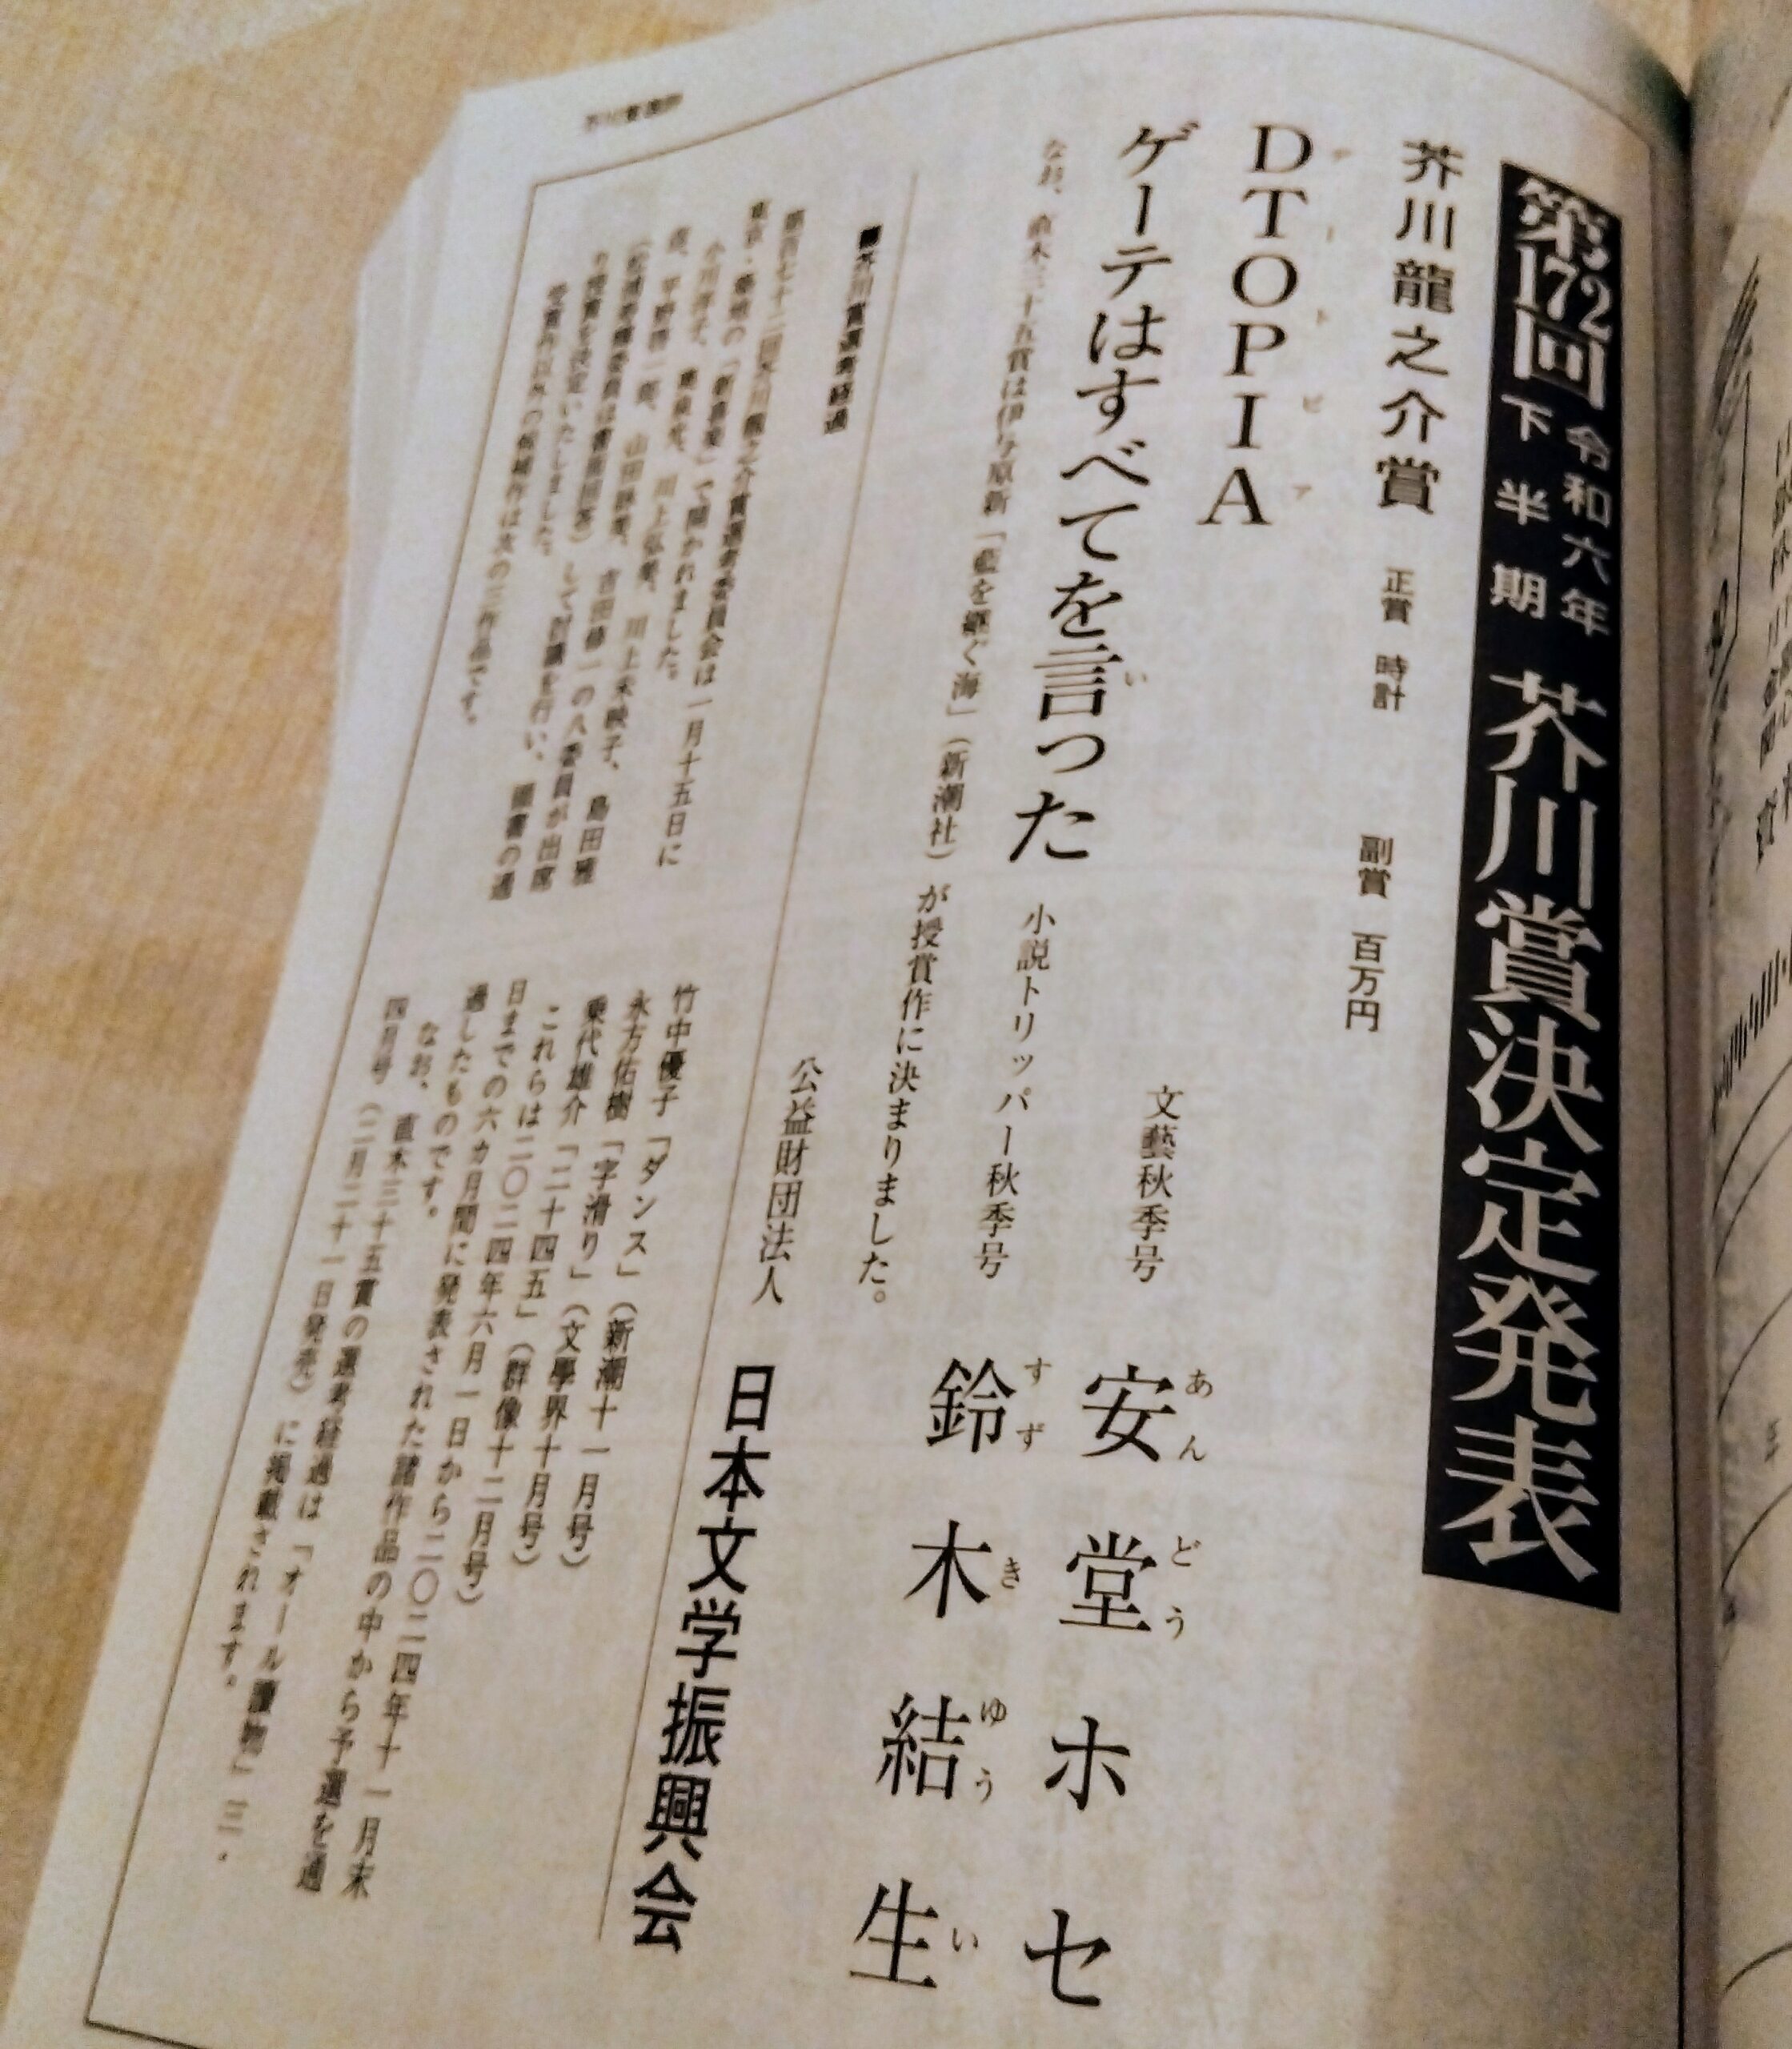 第172回 令和六年下半期 芥川賞決定発表
芥川龍之介賞 正賞 時計 副賞 百万円
DTOPIA 文藝秋季号 安堂ホセ
ディートピア
あんどう
ゲーテはすべてを言った 小説トリッパー秋季号 鈴木結生
い
すずきゆうい
なお、直木三十五賞は伊与原新「藍を継ぐ海」(新潮社)が授賞作に決まりました。
公益財団法人 日本文学振興会
■芥川賞選考経過
第百七十二回芥川龍之介賞選考委員会は一月十五日に
東京・築地の「新喜楽」で開かれました。
小川洋子、奥泉光、川上弘美、川上未映子、島田雅
彦、平野啓一郎、山田詠美、吉田修一の八委員が出席
(松浦寿輝委員は書面回答)して討議を行い、頭書の通
り授賞を決定いたしました。
受賞作以外の候補作は次の三作品です。
竹中優子「ダンス」(新潮十一月号)
永方佑樹「字滑り」(文學界十月号)
乗代雄介「二十四五」(群像十二月号)
これらは二〇二四年六月一日から二〇二四年十一月末
日までの六カ月間に発表された諸作品の中から予選を通
過したものです。
なお、直木三十五賞の選考経過は「オール讀物」三・
四月号(二月二十一日発売)に掲載されます。